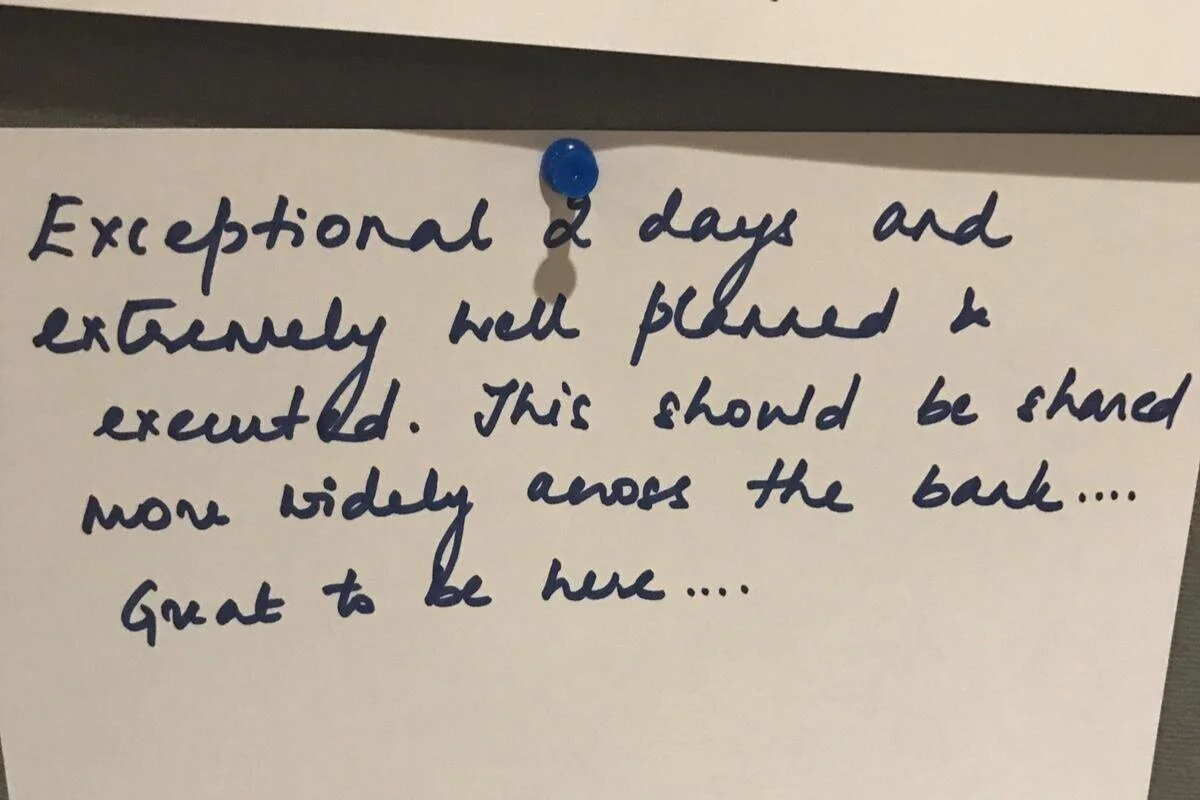 Exceptional 2 days and
extremely well planned &
executed. This should be shared
more widely across the bank....
Great to be here....